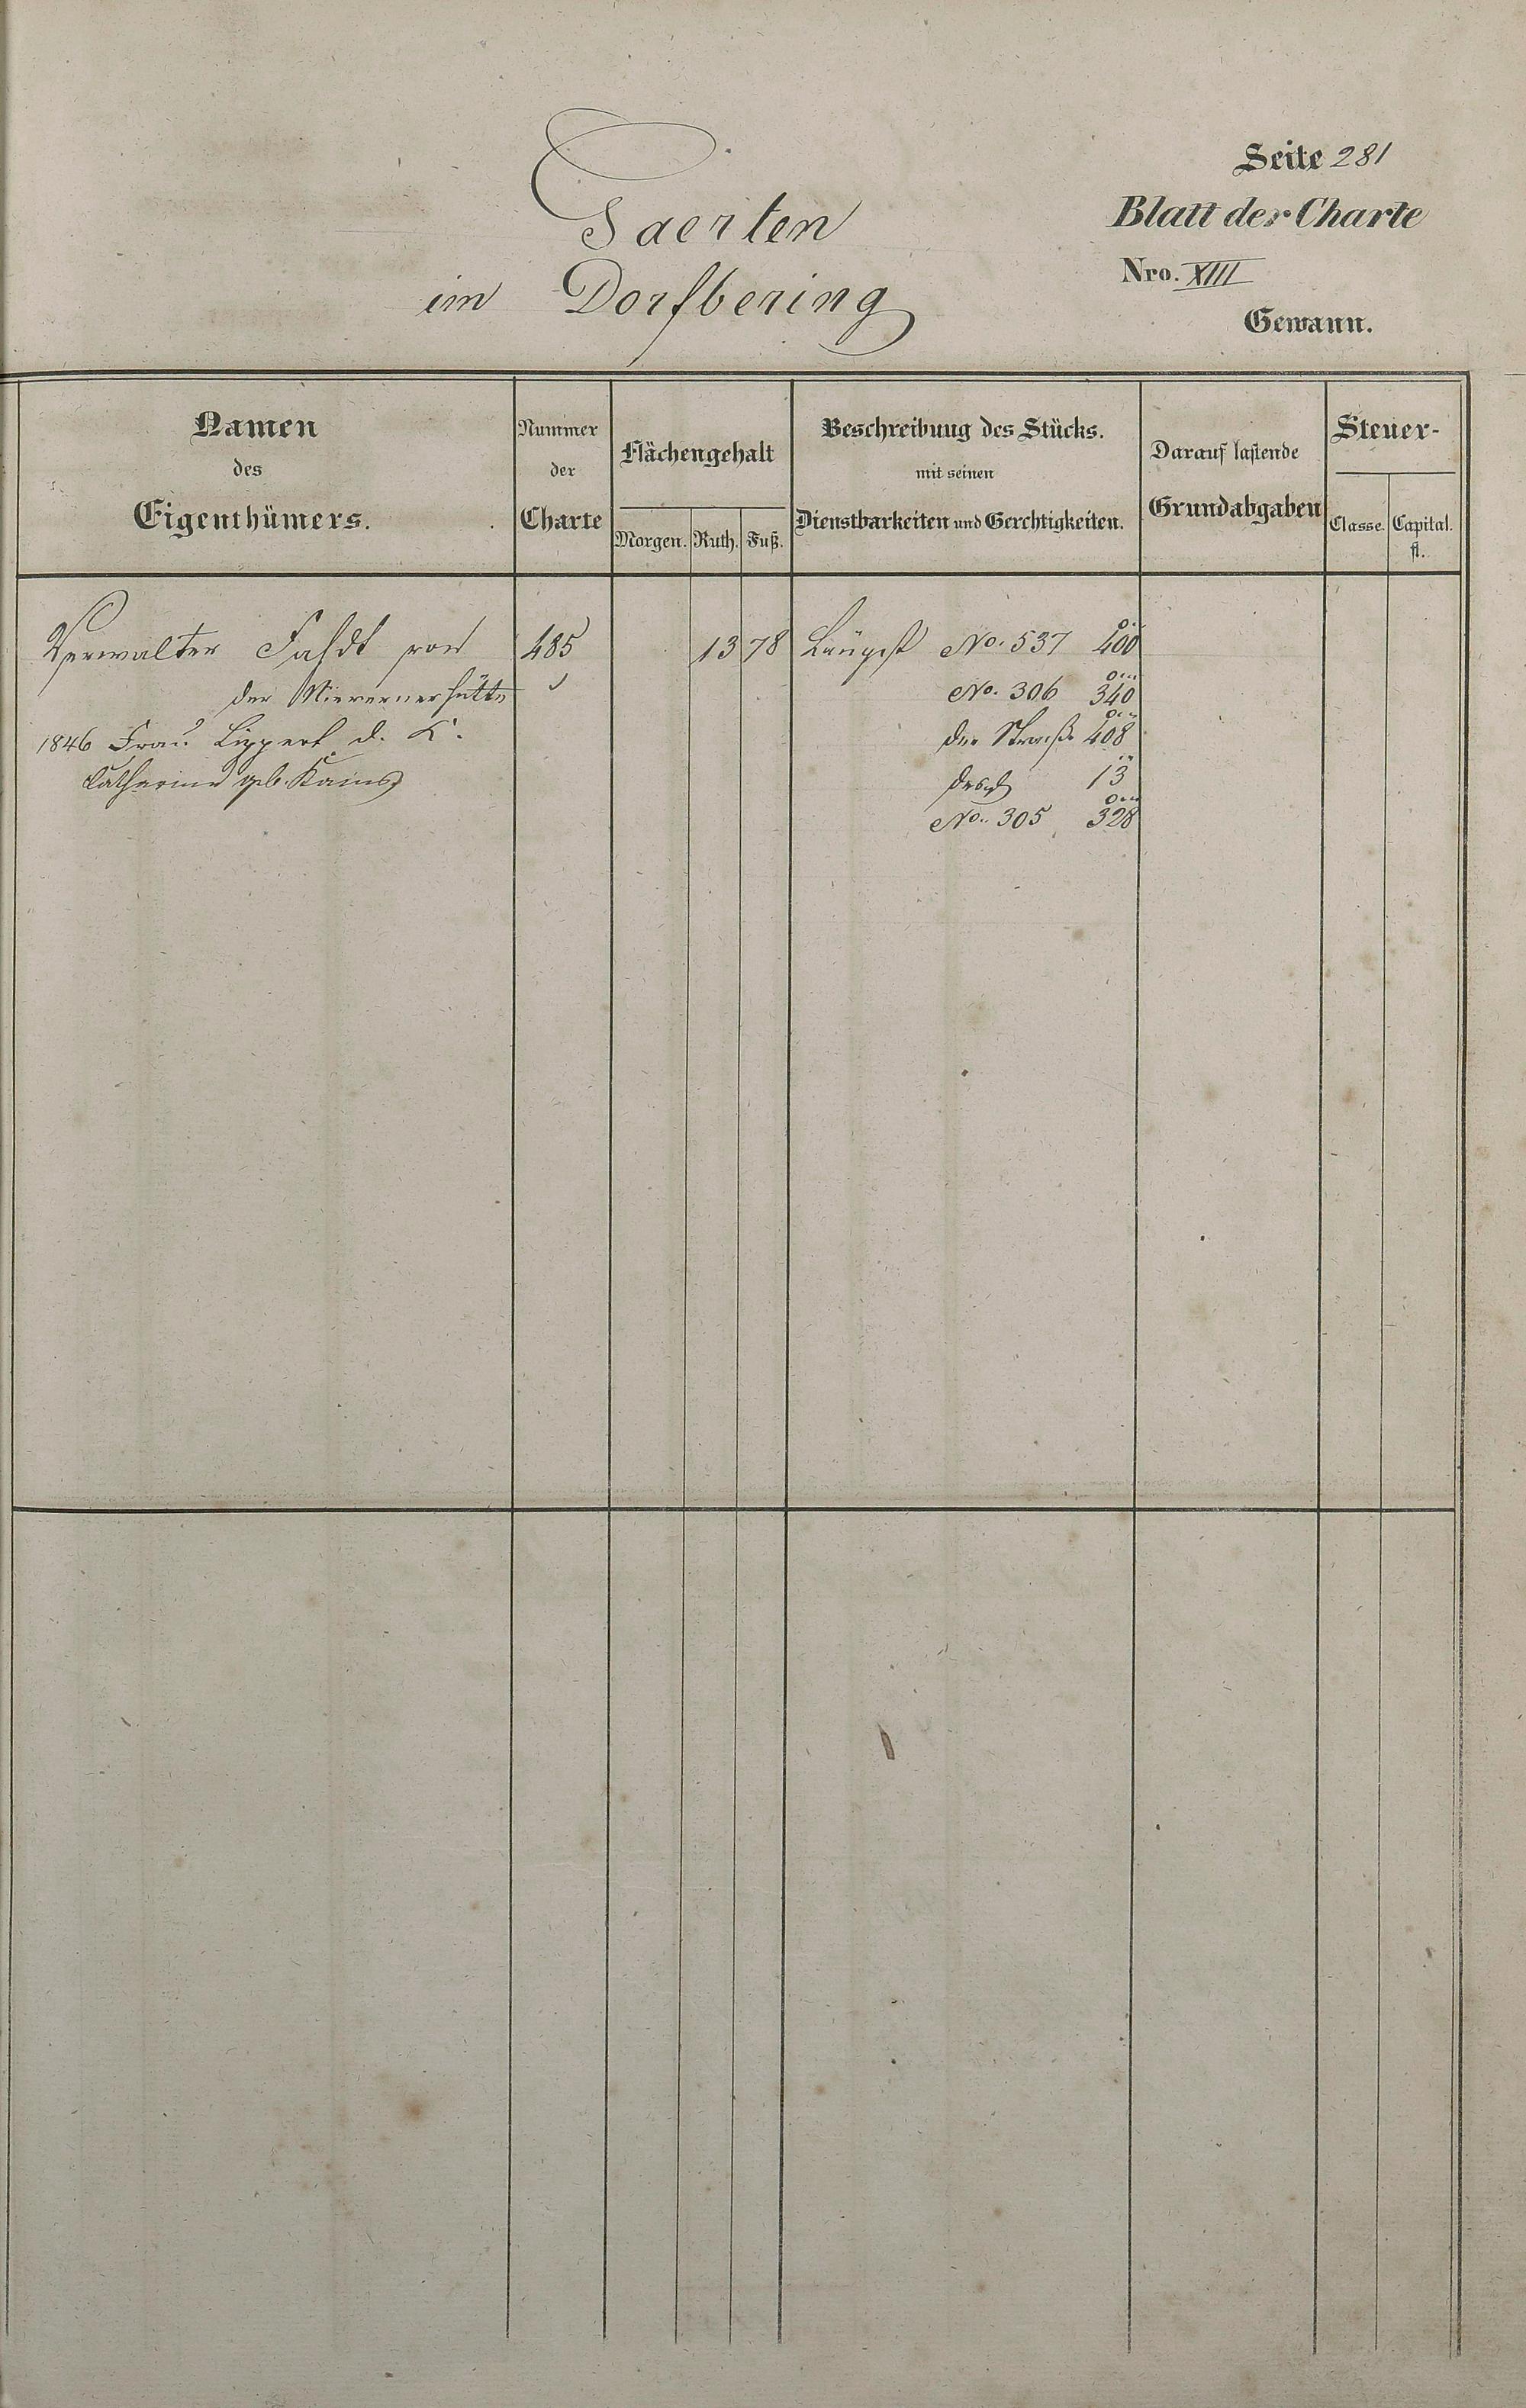 Seite 281
Gaerten
Blatt der Charte
im Dorfbering
Nro. XIII
Gewann.
Namen des Eigenthümers.
Nummer der Charte
Flächengehalt
Morgen. Ruth. Fuß.
Beschreibung des Stücks. mit seinen Dienstbarkeiten und Gerechtigkeiten.
Darauf lastende Grundabgaben
Steuer-
Classe. Capital. fl.
Verwalter von 485 13 78 Längst No. 537 400
der Nievernerhütte No. 306 340
1846 Frau Lippert d. K. der Straße 408
Catharine geb. desgl 13
No. 305 328